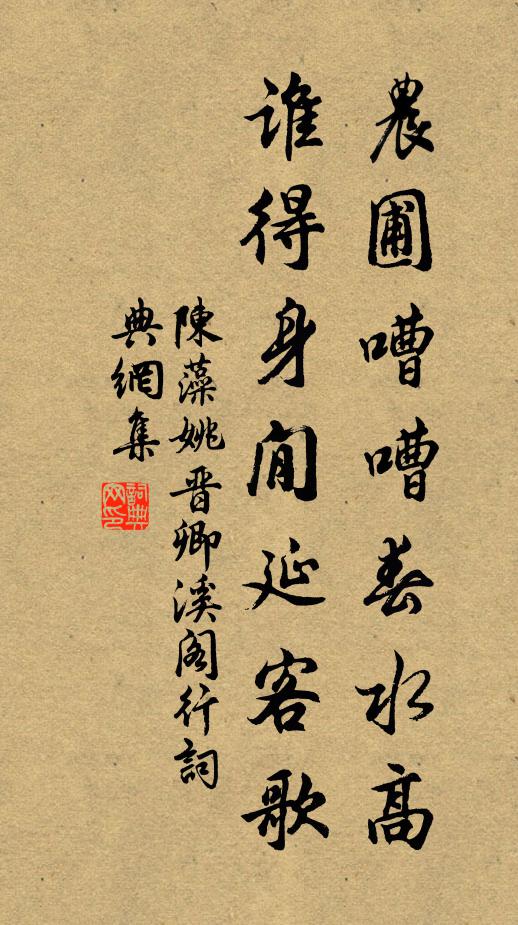 農圃嘈嘈春水高
誰得身閒延客歌
陳藻姚晋卿溪阁行詞
典網集
詞典
网印